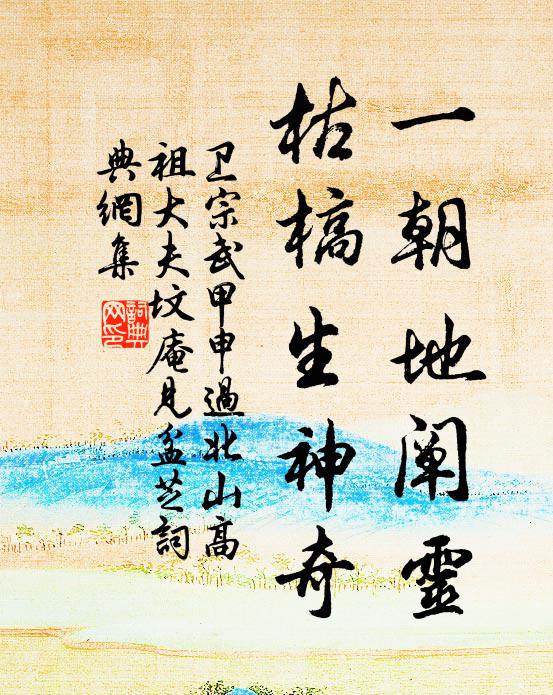 一朝地阐靈
枯槁生神奇
卫宗武甲申過北山高
祖大夫坟庵見盆芝詞
典網集
詞典網印